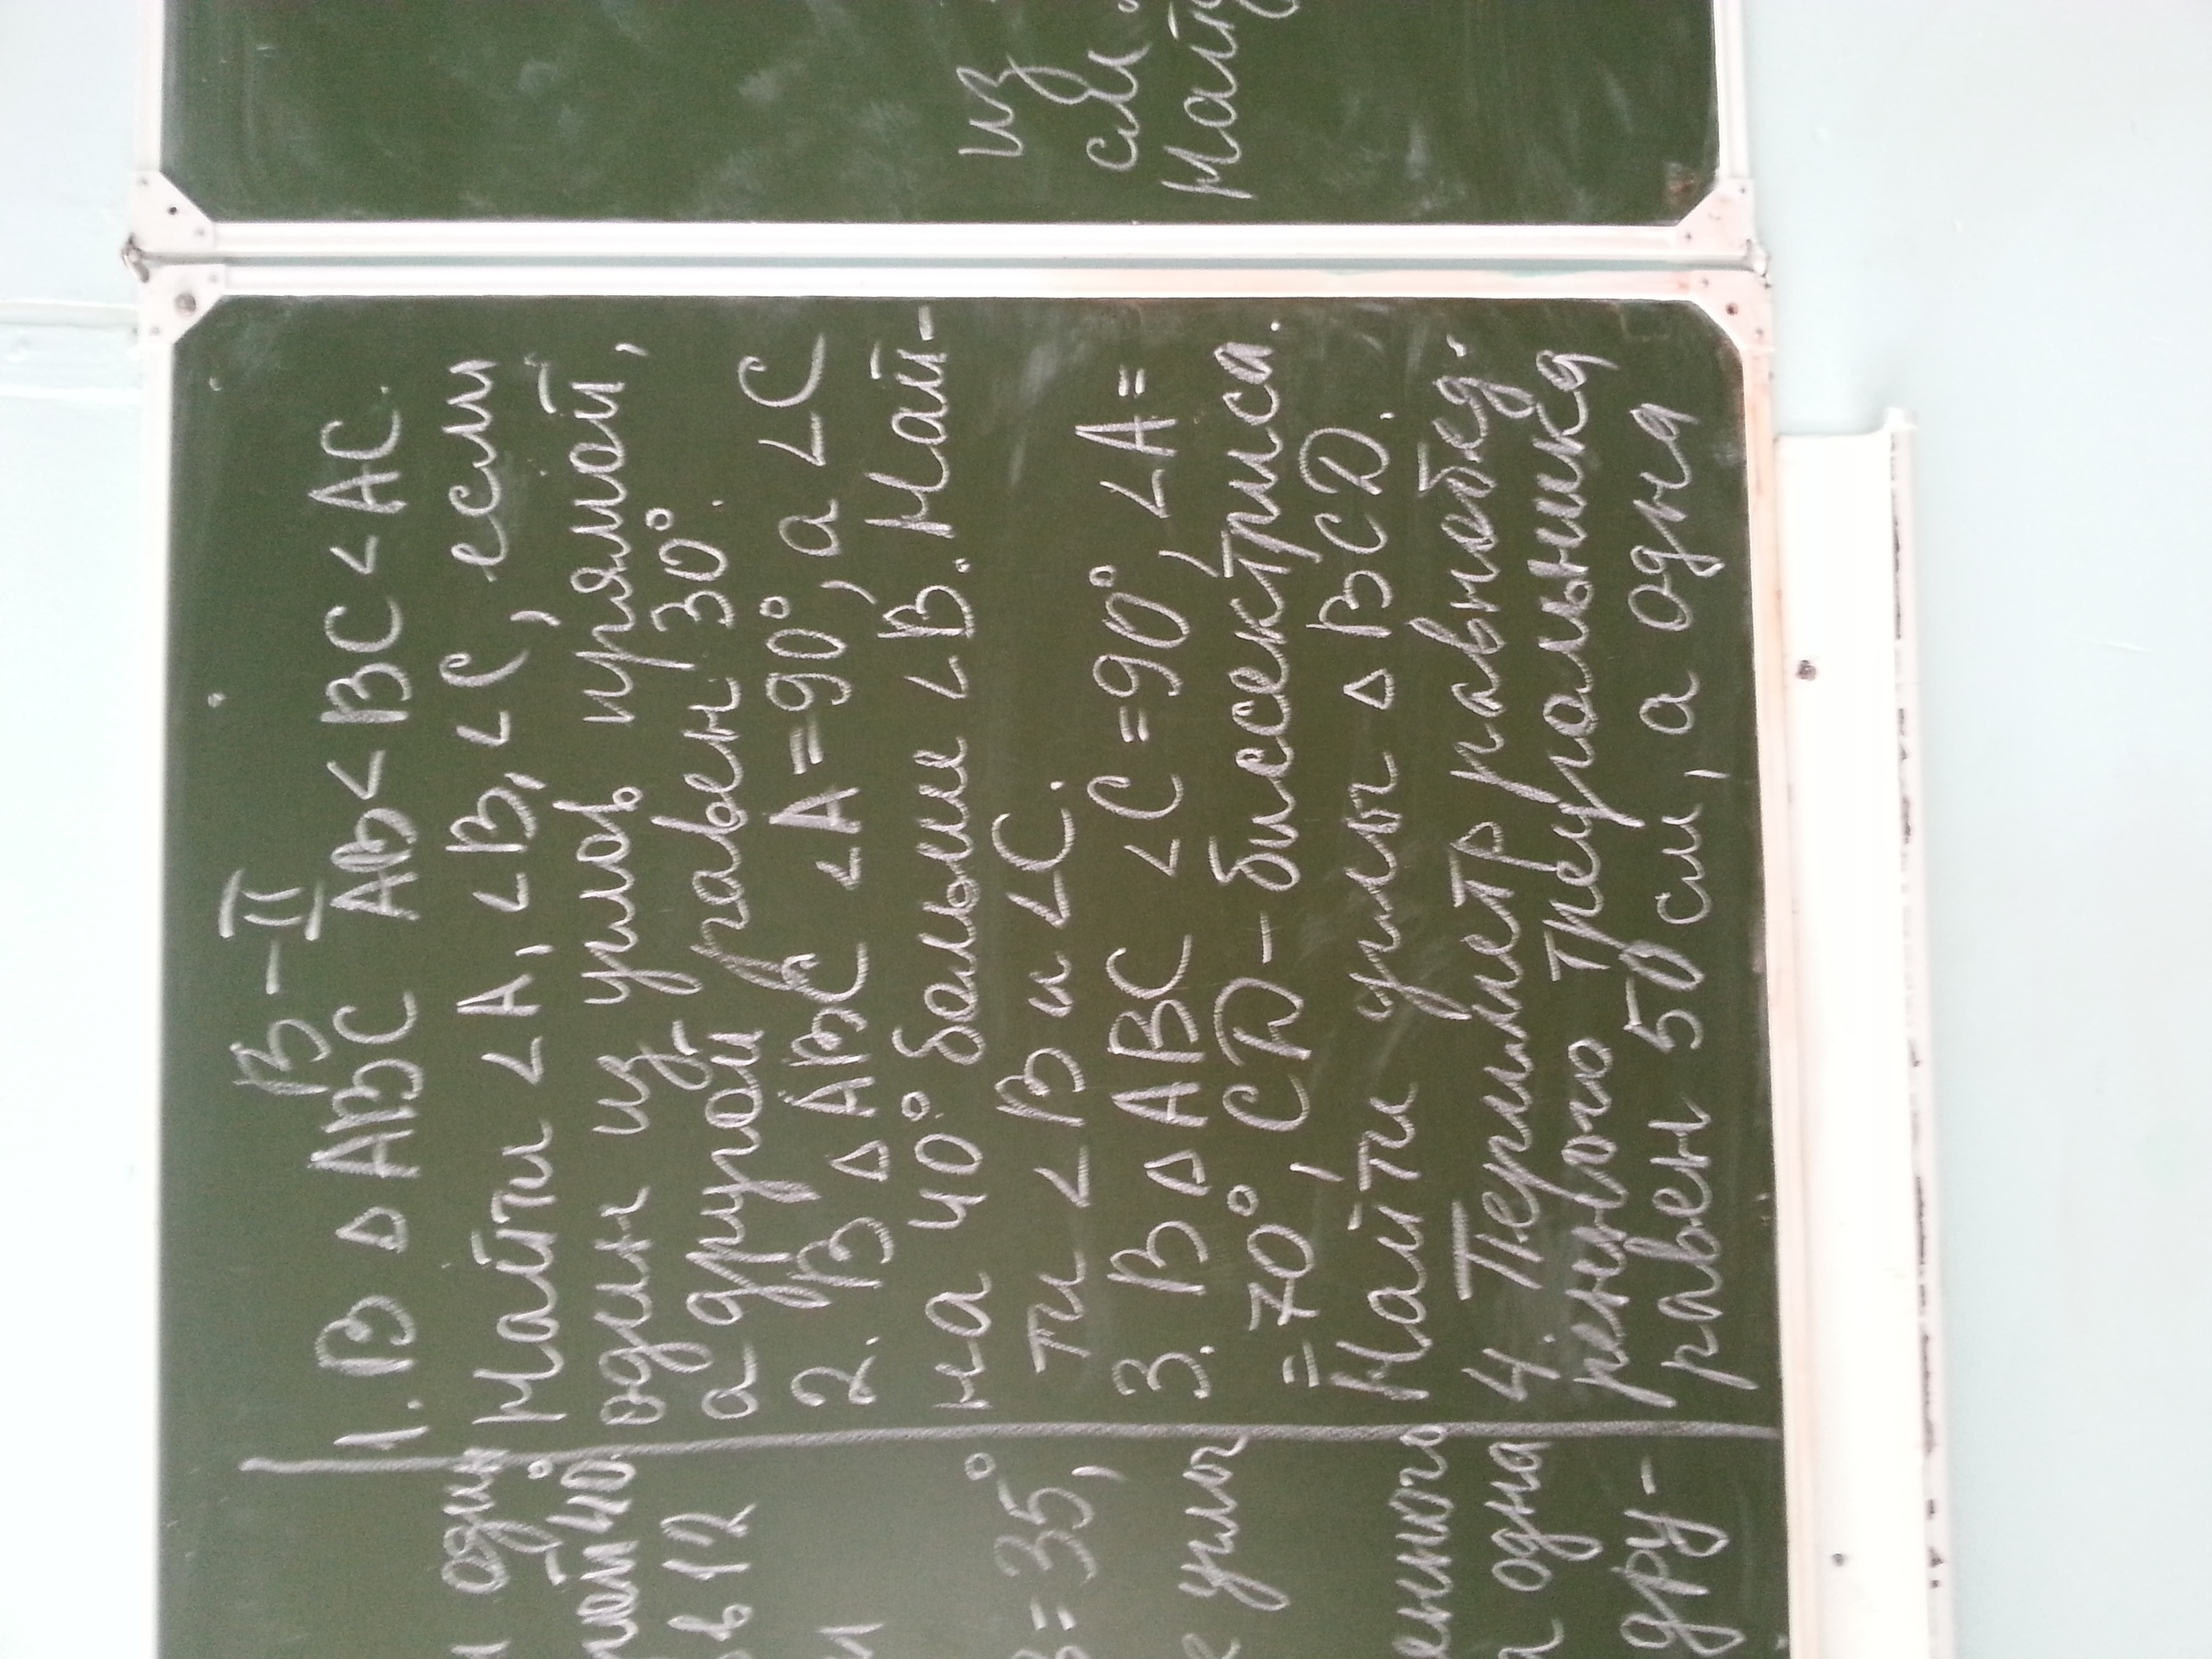 В-II
1. В △ ABC AB < BC < AC.
Найти ∠A, ∠B, ∠C, если
один из углов прямой,
а другой равен 30°.
2. В △ ABC ∠A = 90°, а ∠C
на 40° больше ∠B. Най-
ти ∠B и ∠C.
3. В △ ABC ∠C = 90°, ∠A =
= 70°, CD - биссектриса.
Найти углы △ BCD.
4. Периметр равнобед-
ренного треугольника
равен 50 см, а одна
один
40°
в 12
B = 35°,
углы
енного
одна
дру-
из
см.
Найд